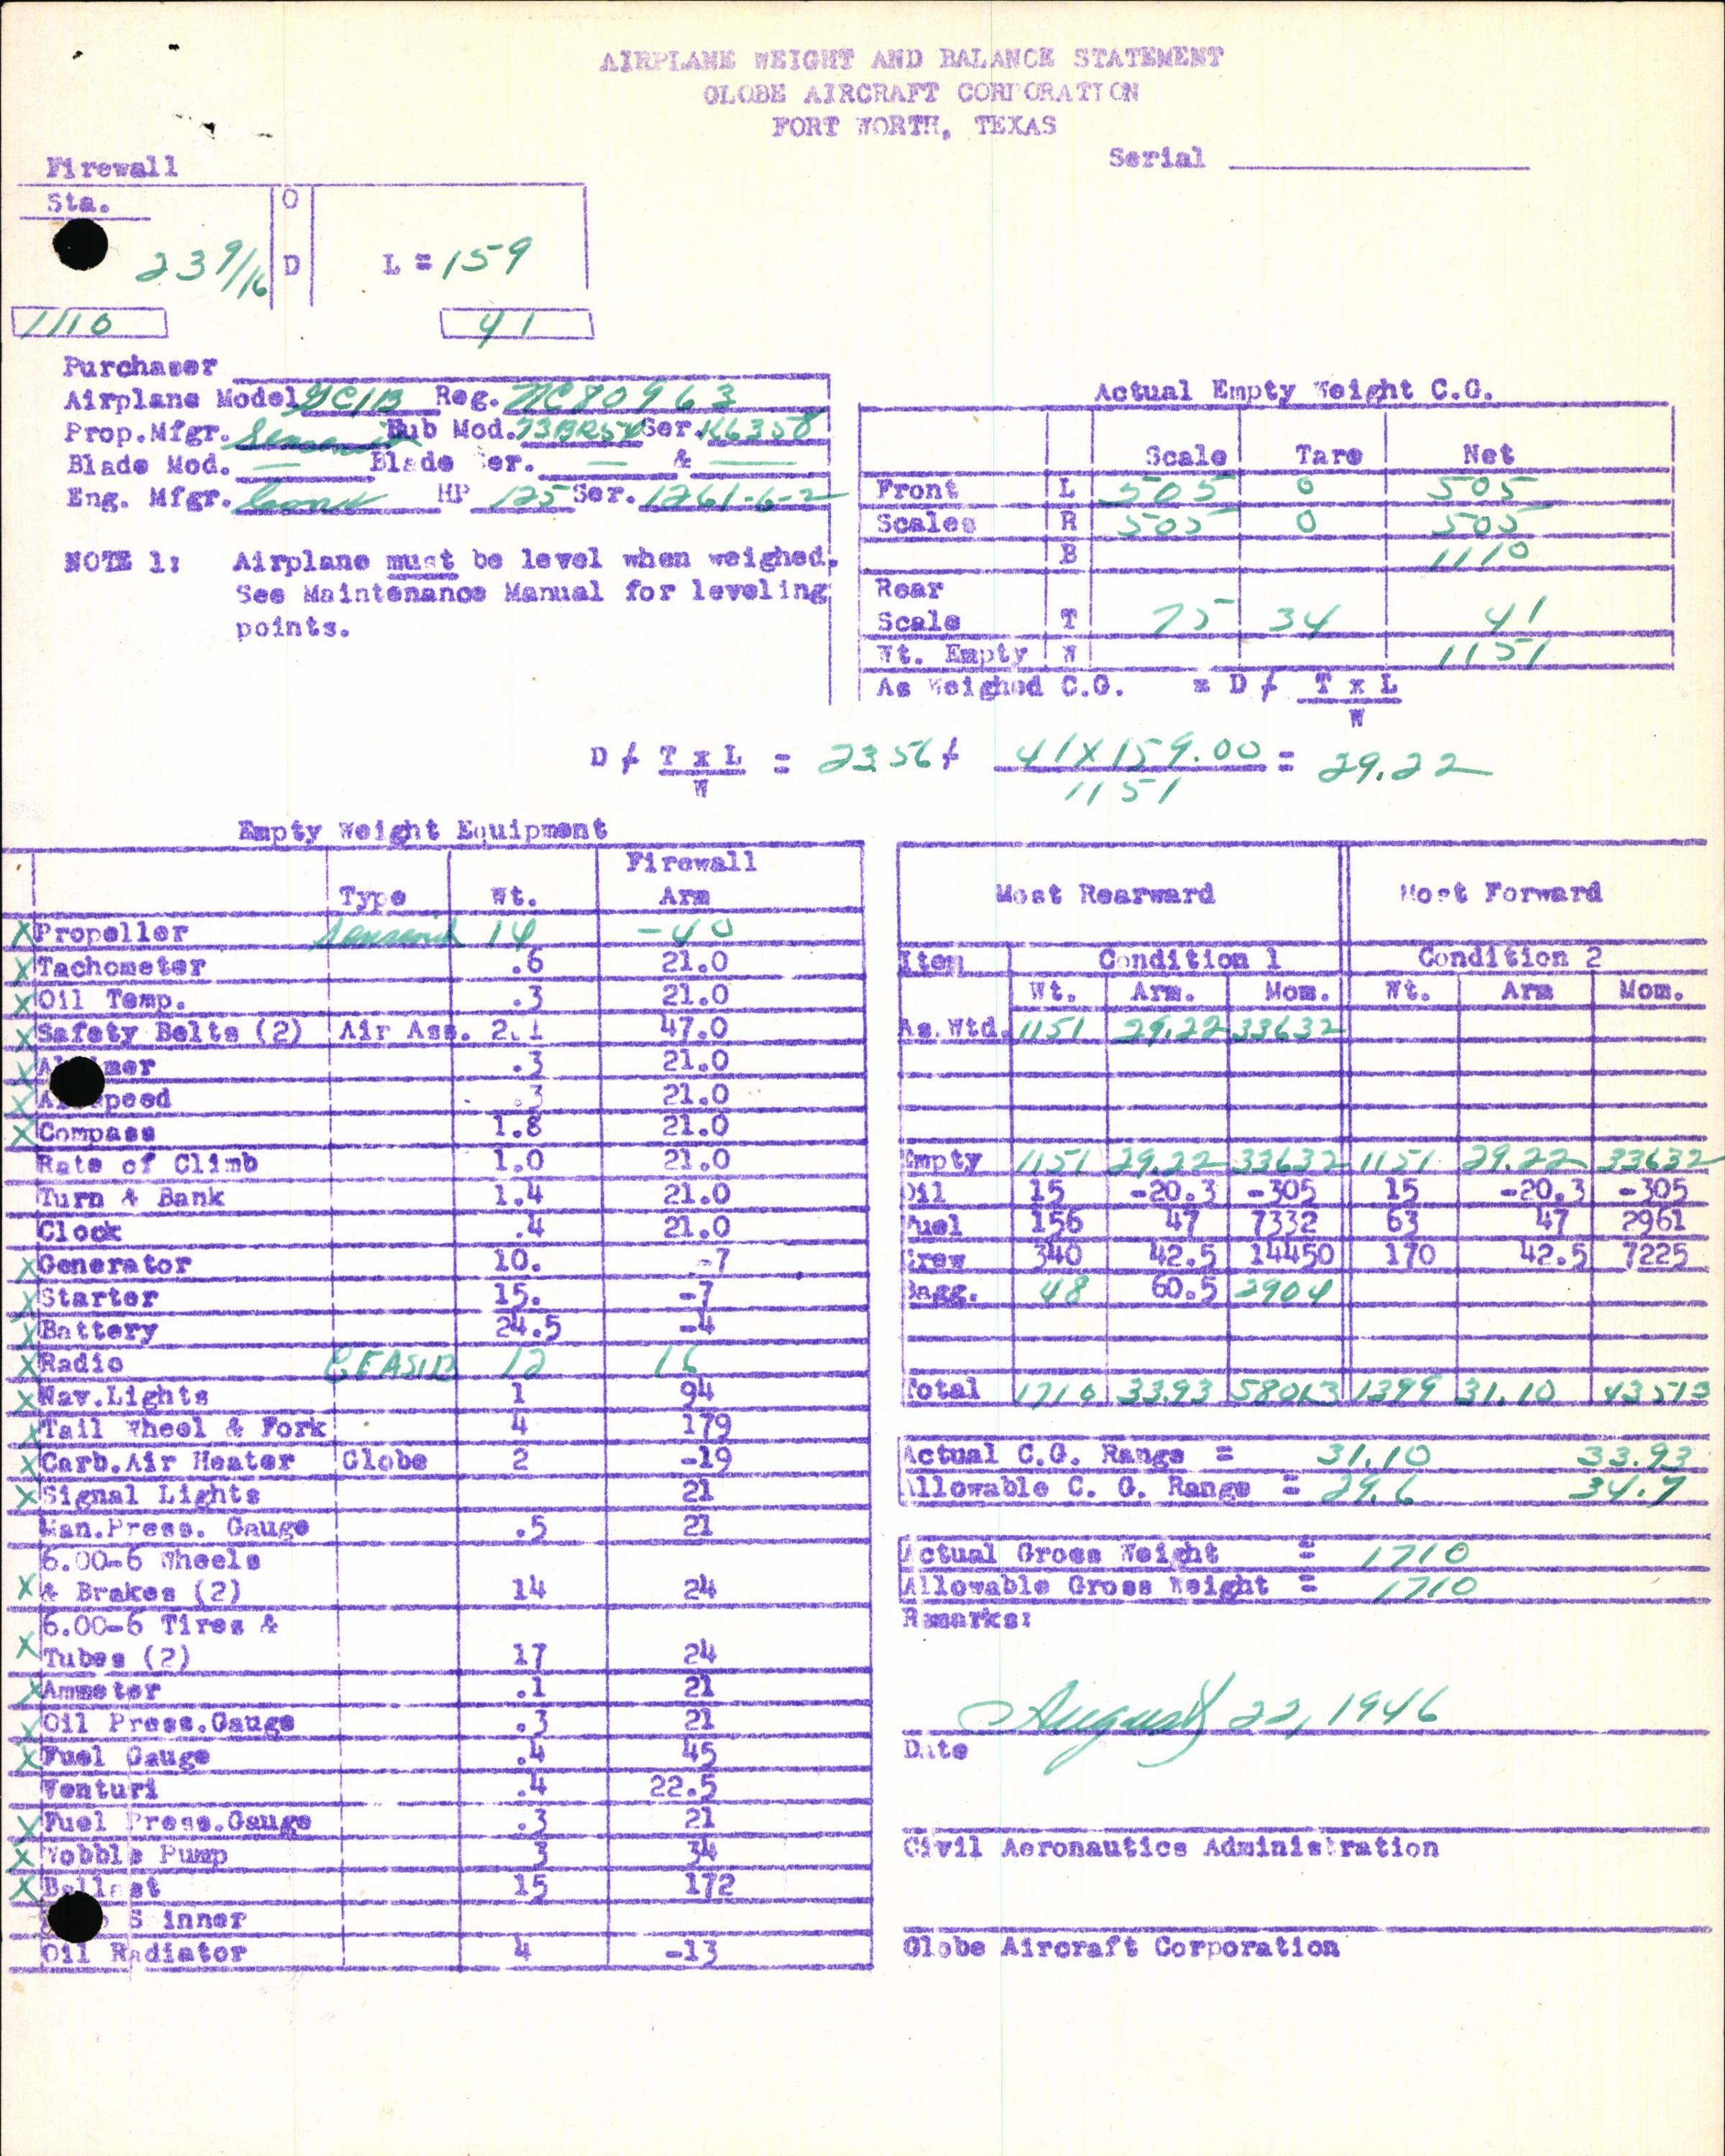 AIRPLANE WEIGHT AND BALANCE STATEMENT
GLOBE AIRCRAFT CORPORATION
FORT WORTH, TEXAS
Serial
Firewall
Sta. O
23 9/16 D L = 159
1110 41
Purchaser
Airplane Model GC1B Reg. NC80963
Prop.Mfgr. Hub Mod. 73BR54 Ser. K6358
Blade Mod. — Blade Ser. — & —
Eng. Mfgr. Cont HP 125 Ser. 1261-6-2
NOTE 1: Airplane must be level when weighed.
See Maintenance Manual for leveling
points.
Actual Empty Weight C.G.
Scale Tare Net
Front L 505 0 505
Scales R 505 0 505
B 1110
Rear
Scale T 75 34 41
Wt. Empty W 1151
As Weighed C.G. = D + T x L
W
D + T x L = 23.56 + 41 X 159.00 = 29.22
W 1151
Empty Weight Equipment
Firewall
Type Wt. Arm
X Propeller Sensenich 14 -40
X Tachometer .6 21.0
X Oil Temp. .3 21.0
X Safety Belts (2) Air Ass. 2.1 47.0
X mer .3 21.0
X speed .3 21.0
X Compass 1.8 21.0
Rate of Climb 1.0 21.0
Turn & Bank 1.4 21.0
Clock .4 21.0
X Generator 10. -7
X Starter 15. -7
X Battery 24.5 -4
X Radio 12 16
X Nav.Lights 1 94
X Tail Wheel & Fork 4 179
X Carb.Air Heater Globe 2 -19
X Signal Lights 21
Man.Press. Gauge .5 21
6.00-6 Wheels
X & Brakes (2) 14 24
6.00-6 Tires &
X Tubes (2) 17 24
X Ammeter .1 21
X Oil Press.Gauge .3 21
X Fuel Gauge .4 45
Venturi .4 22.5
X Fuel Press.Gauge .3 21
X Wobble Pump 3 34
X Ballast 15 172
Spinner
Oil Radiator 4 -13
Most Rearward Most Forward
Item Condition 1 Condition 2
Wt. Arm. Mom. Wt. Arm Mom.
As.Wtd. 1151 29.22 33632
Empty 1151 29.22 33632 1151 29.22 33632
Oil 15 -20.3 -305 15 -20.3 -305
Fuel 156 47 7332 63 47 2961
Crew 340 42.5 14450 170 42.5 7225
Bagg. 48 60.5 2904
Total 1710 33.93 58013 1399 31.10 43513
Actual C.G. Range = 31.10 33.93
Allowable C. G. Range = 29.6 34.7
Actual Gross Weight = 1710
Allowable Gross Weight = 1710
Remarks:
August 22, 1946
Date
Civil Aeronautics Administration
Globe Aircraft Corporation